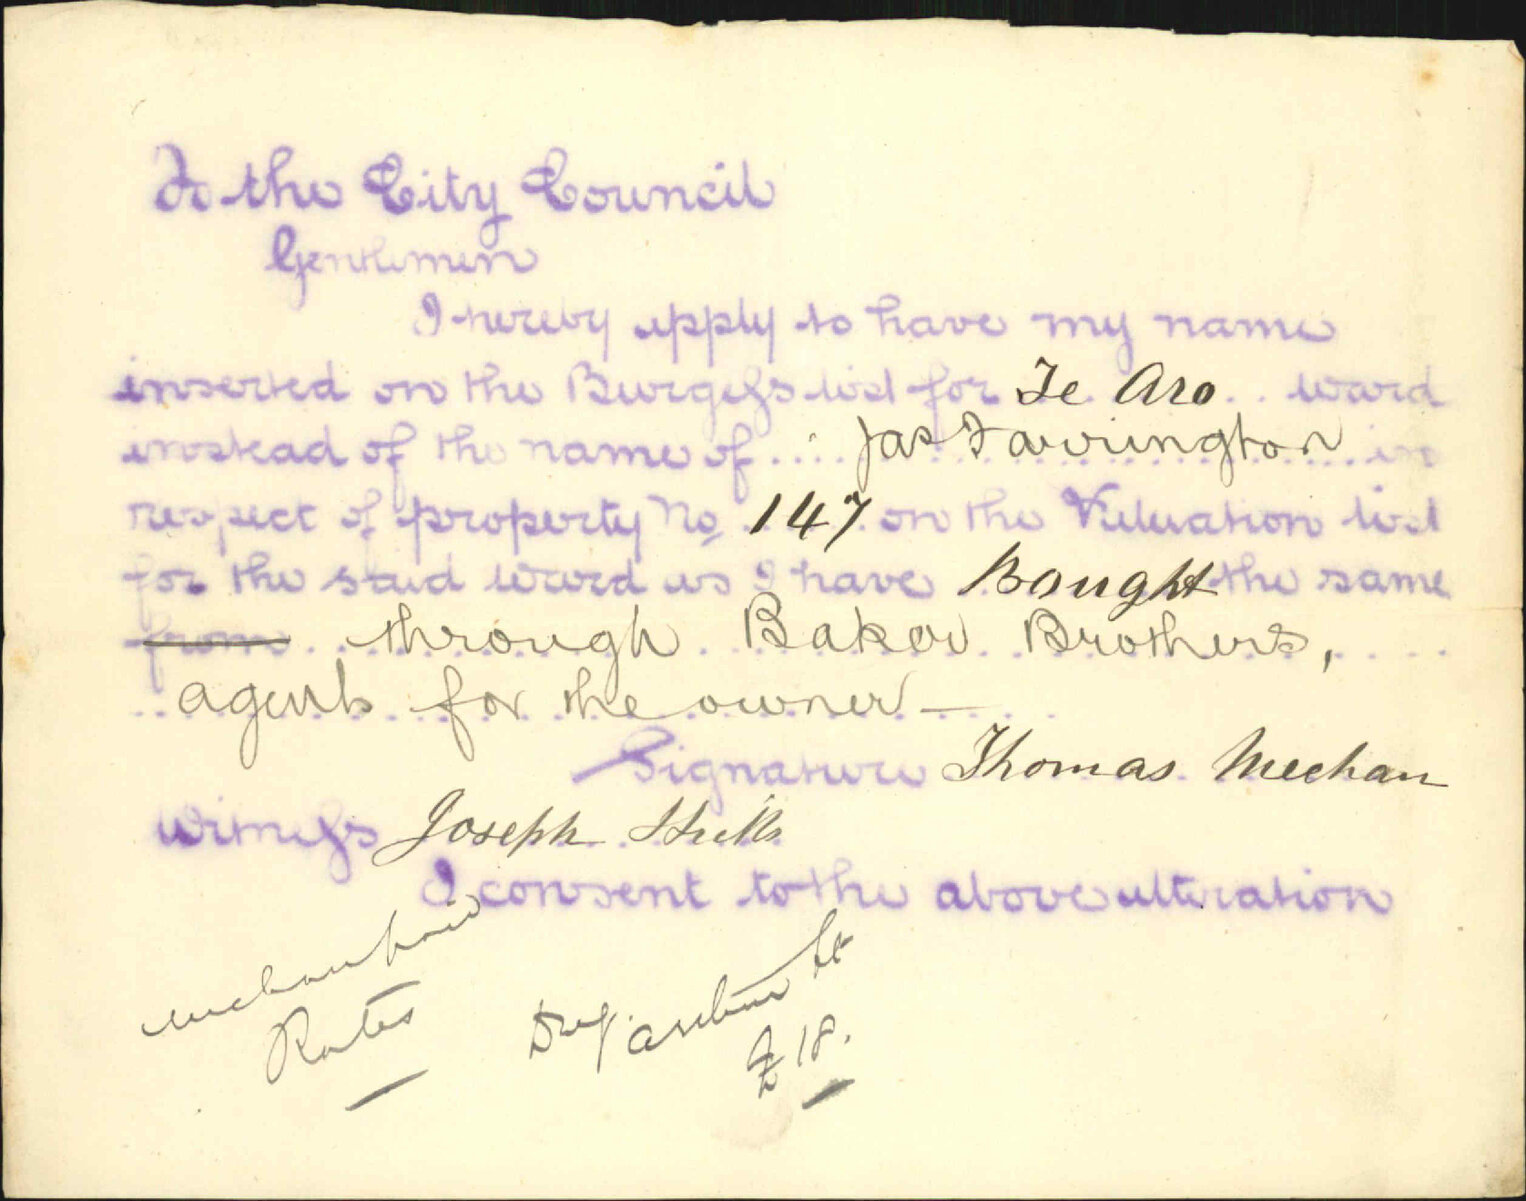 To the City Council
Gentlemen
I hereby apply to have my name
inserted on the Burgess list for Te Aro ward
instead of the name of Jas Farrington in
respect of property No 147 on the Valuation list
for the said Ward as I have Bought the same
from through Baker Brothers,
agents for the owner —
Signature Thomas Meehan
Witness Joseph
I consent to the above alteration
Meehan paid
Rates
£18.